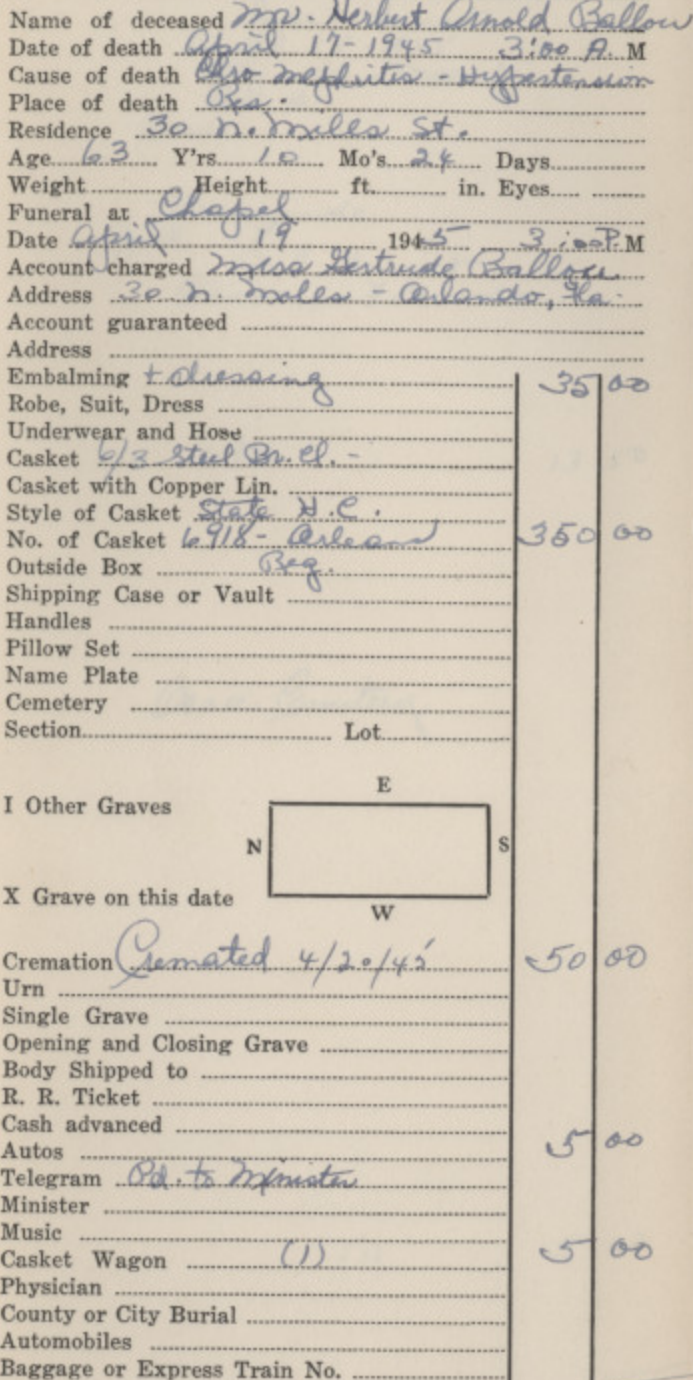 Name of deceased Mr. Herbert Arnold Ballou
Date of death April 17-1945 3:00 A. M
Cause of death Chro Nephritis - Hypertension
Place of death Res.
Residence 30 N. Mills St.
Age 63 Y'rs 10 Mo's 24 Days
Weight Height ft. in. Eyes
Funeral at Chapel
Date April 19 1945 3:00 P. M
Account charged Miss Gertrude Ballou
Address 30 N. Mills - Orlando, Fla.
Account guaranteed
Address
Embalming + dressing 35 00
Robe, Suit, Dress
Underwear and Hose
Casket 6/3 Steel Br. Cl. -
Casket with Copper Lin.
Style of Casket State H.C.
No. of Casket 6918- Orleans 350 00
Outside Box Reg.
Shipping Case or Vault
Handles
Pillow Set
Name Plate
Cemetery
Section Lot
E
I Other Graves
N S
X Grave on this date
W
Cremation Cremated 4/20/45 50 00
Urn
Single Grave
Opening and Closing Grave
Body Shipped to
R. R. Ticket
Cash advanced
Autos 5 00
Telegram Pd. to Minister
Minister
Music
Casket Wagon (1) 5 00
Physician
County or City Burial
Automobiles
Baggage or Express Train No.